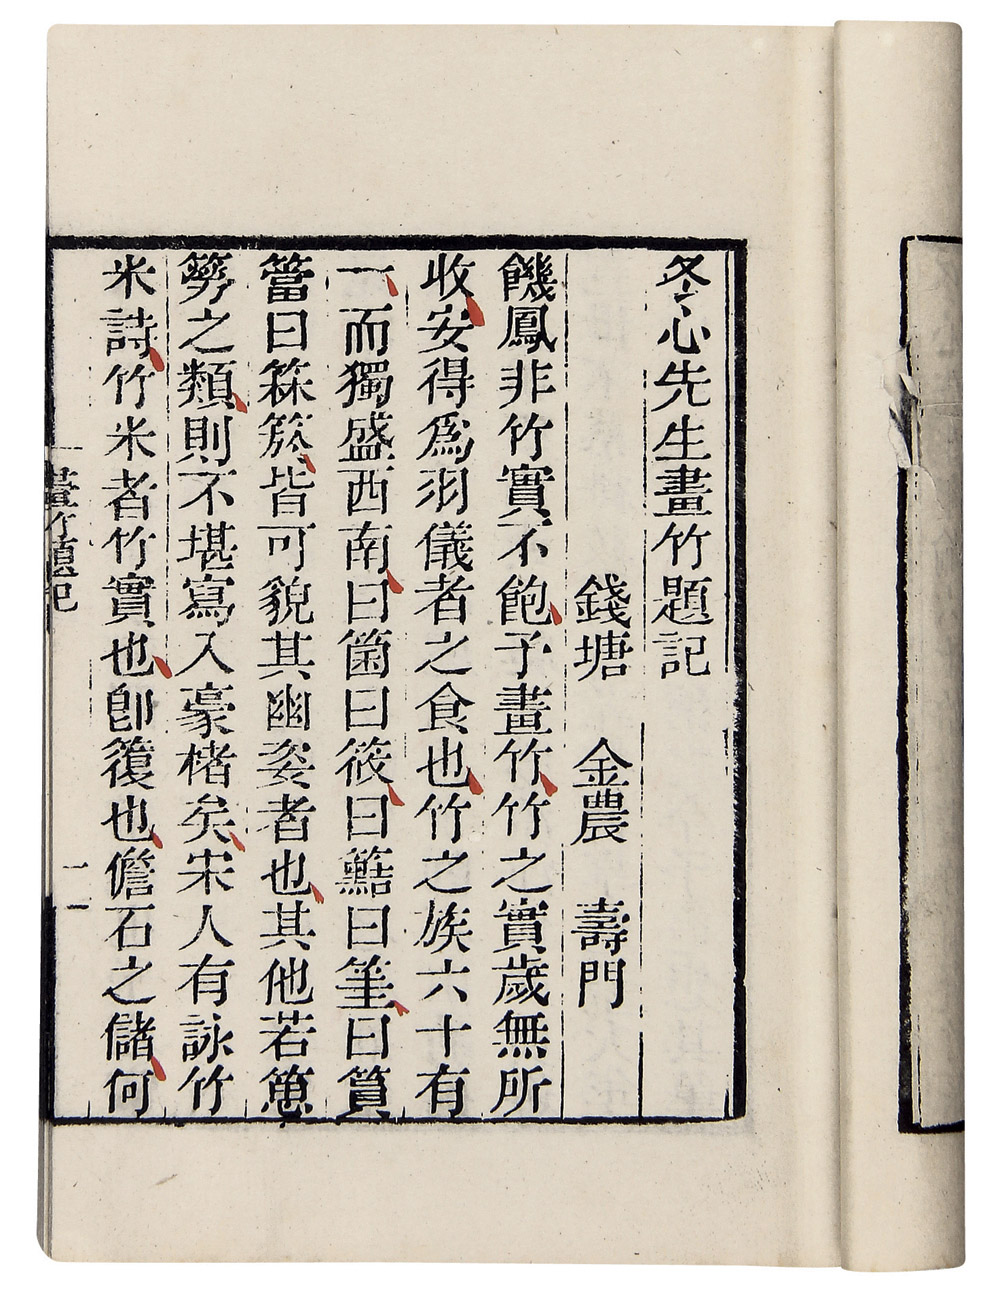 冬心先生畫竹題記
錢塘 金農 壽門
饑鳳非竹實不飽予畫竹竹之實歲無所
收安得爲羽儀者之食也竹之族六十有
一而獨盛西南曰箘曰筱曰曰筀曰篔
簹曰箖箊皆可貌其幽姿者也其他若
簩之類則不堪寫入豪楮矣宋人有詠竹
米詩竹米者竹實也卽也儋石之儲何
畫竹題記